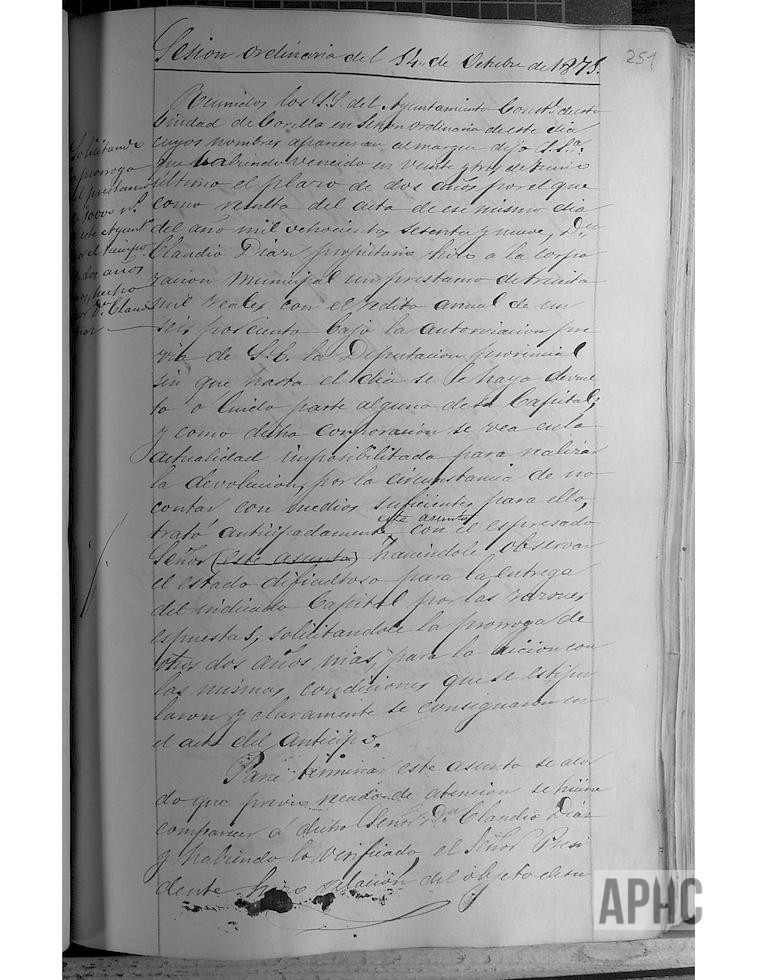 Sesion ordinaria del 14 de Octubre de 1875.
251
Reunidos los S.S. del Ayuntamiento Constl. de esta
Ciudad de Corella en sesion ordinaria de este dia
cuyos nombres aparecen al margen dijo S.Sa.
que habiendo vencido en veinte y tres de Junio
último el plazo de dos años por el que
como resulta del acta de ese mismo dia
del año mil ochocientos setenta y nueve, Dn.
Claudio Diaz propietario hizo a la corpo
racion Municipal un prestamo de treinta
mil reales con el redito anual de un
seis por ciento bajo la autorizacion pre
via de S.E. la Diputacion provincial
sin que hasta el dia se le haya devuel
to o luido parte alguna de su Capital;
y como dicha Corporacion se vea en la
actualidad imposibilitada para realizar
la devolucion, por la circunstancia de no
contar con medios suficientes para ello,
trató anticipadamente este asunto con el espresado
Señor (este asunto) haciendole observar
el estado dificultoso para la entrega
del indicado Capital por las razones
espuestas, solicitandole la prorroga de
otros dos años mas, para la luicion con
las mismas condiciones que se estipu
laron y claramente se consignaron en
el acta del anticipo.
Para terminar este asunto se acor
do que previo recado de atencion se hiciera
comparecer á dicho Señor Dn. Claudio Diaz
y habiendolo verificado, el Señor Presi
dente hizo relacion del objeto de su
Solicitando
prorroga
del prestamo
de rs.
este Ayunto.
el tiempo
de dos años
hecho
por Dn. Claudio
Diaz
APHC